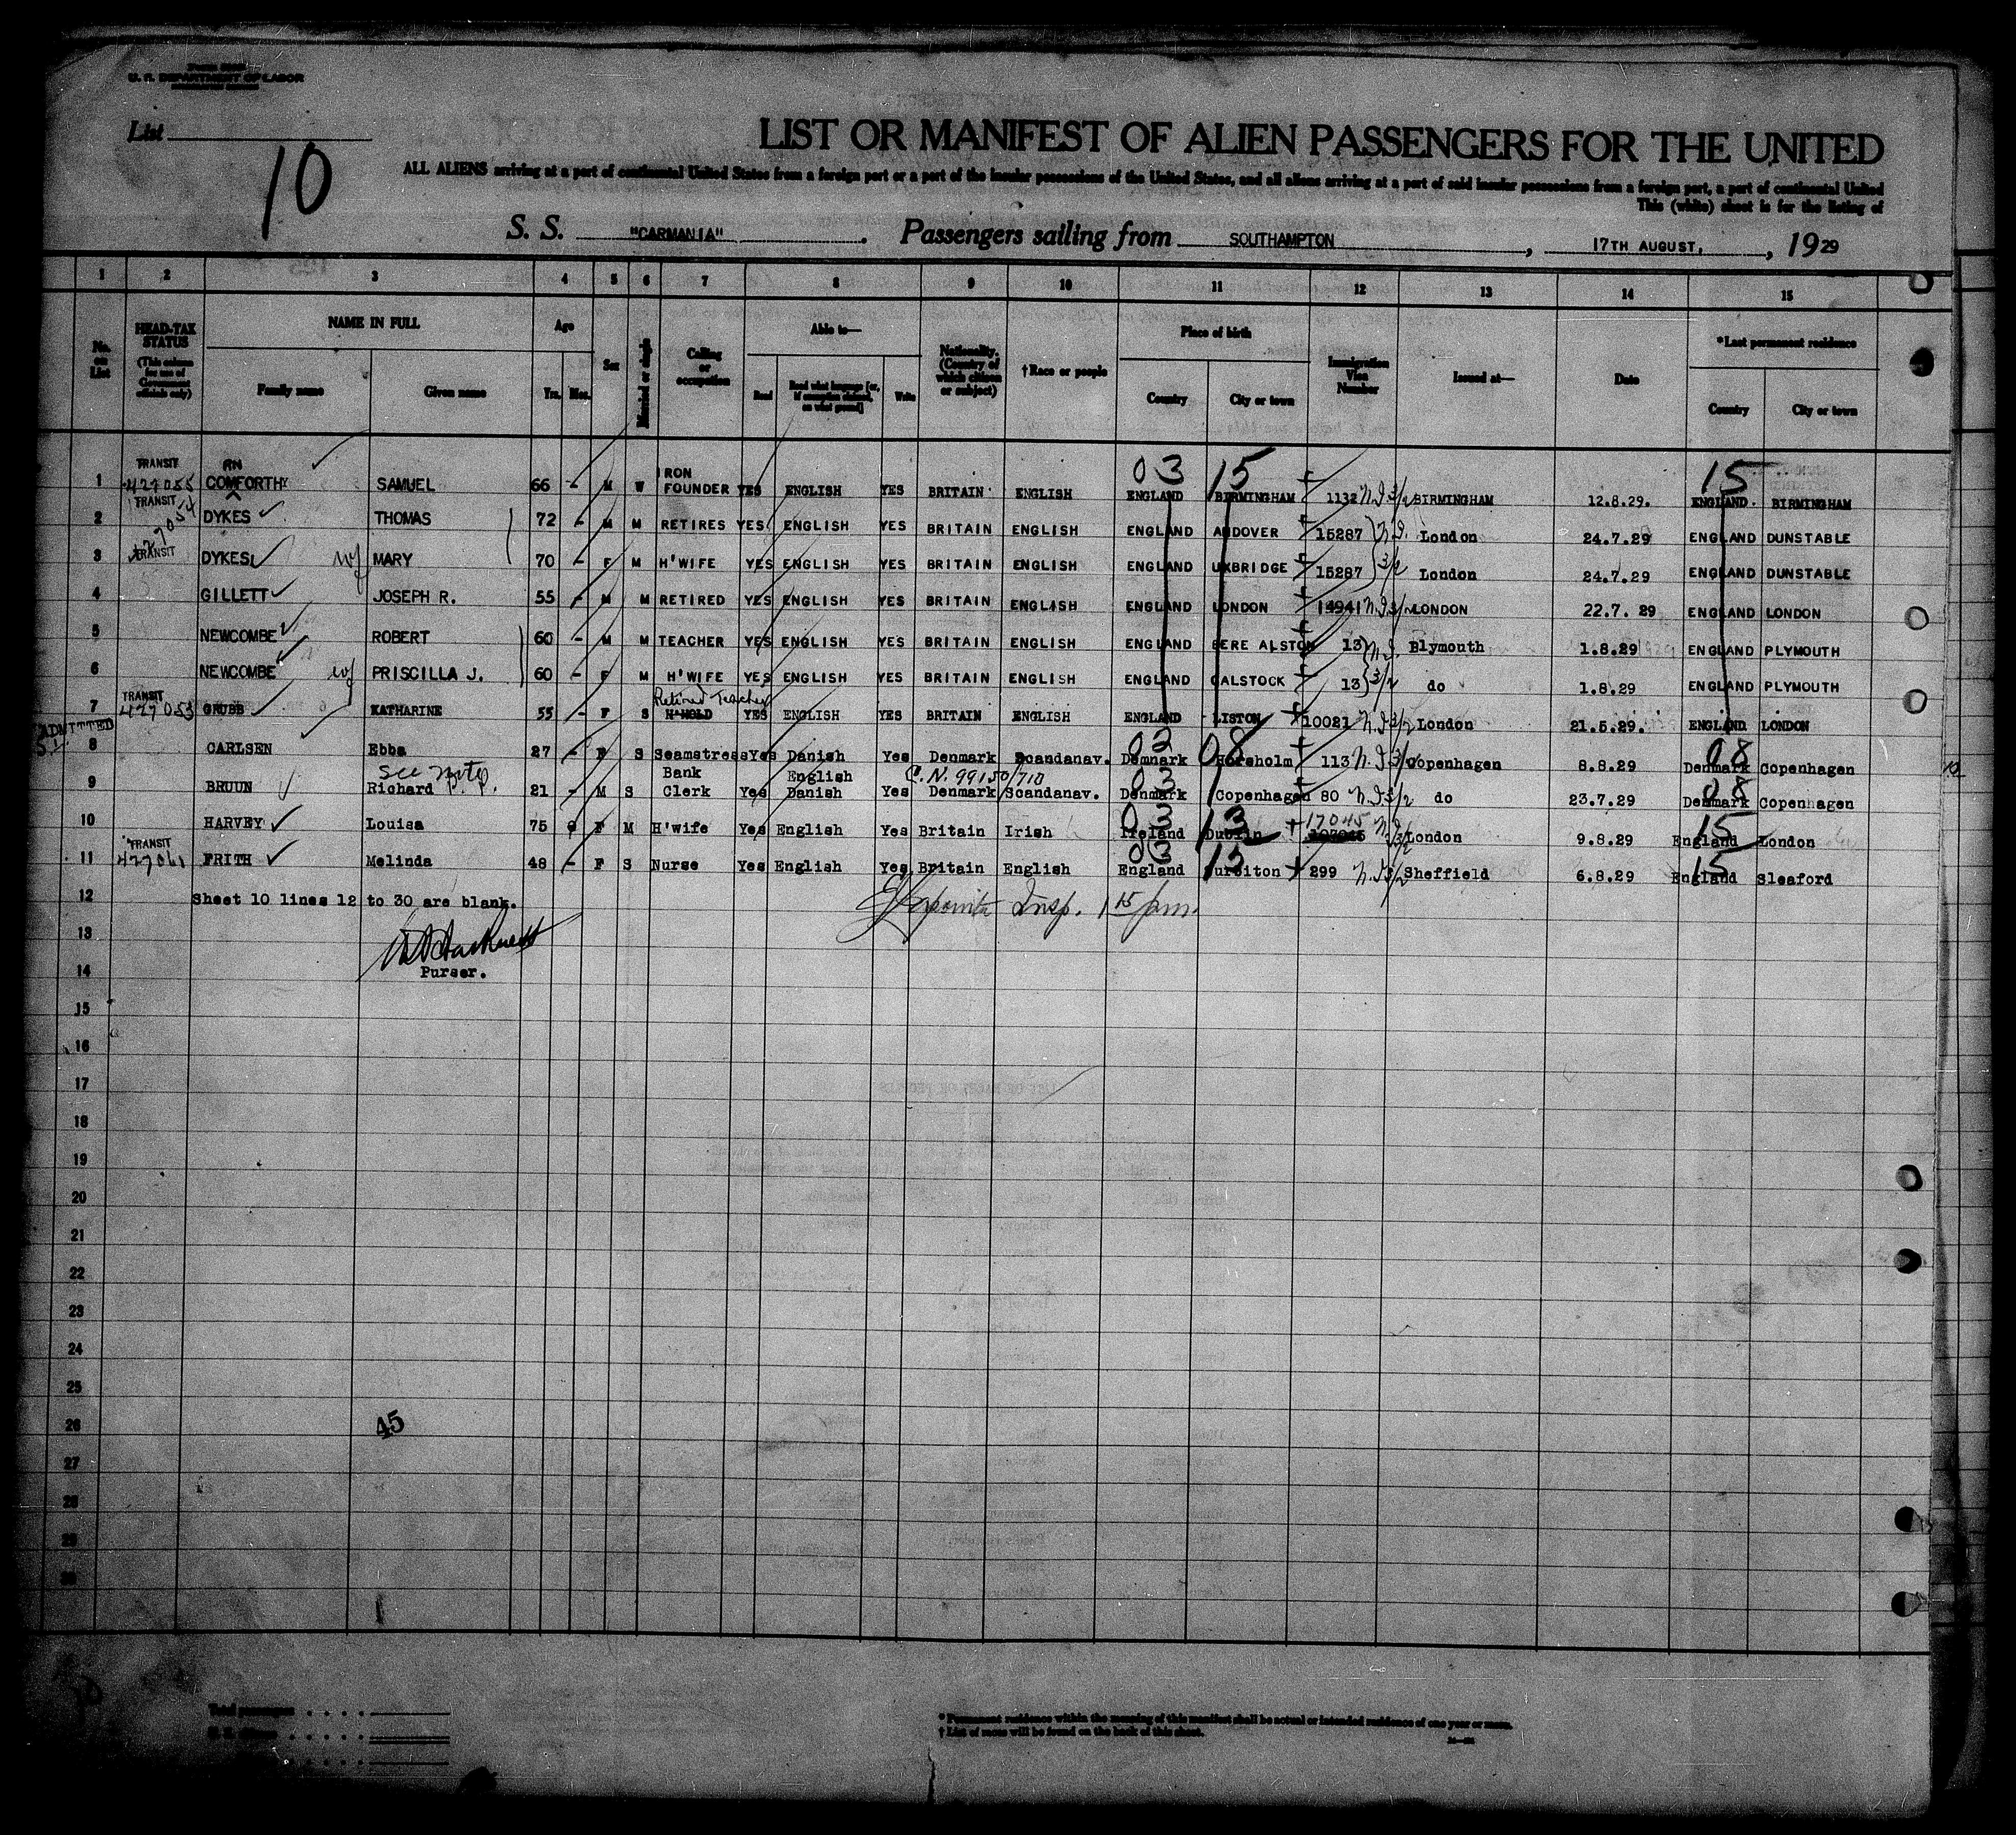 U. S. DEPARTMENT OF LABOR
List
10
LIST OR MANIFEST OF ALIEN PASSENGERS FOR THE UNITED
ALL ALIENS arriving at a port of continental United States from a foreign port or a port of the insular possessions of the United States, and all aliens arriving at a port of said insular possessions from a foreign port, a port of continental United
This (white) sheet is for the listing of
S. S. "CARMANIA". Passengers sailing from SOUTHAMPTON, 17TH AUGUST, 1929
1 2 3 4 5 6 7 8 9 10 11 12 13 14 15
No. on List
HEAD-TAX STATUS (This column for use of Government officials only)
NAME IN FULL Family name Given name
Age Yrs. Mos.
Sex
Married or single
Calling or occupation
Able to— Read Read what language [or, if exemption claimed, on what ground] Write
Nationality. (Country of which citizen or subject)
†Race or people
Place of birth Country City or town
Immigration Visa Number
Issued at—
Date
*Last permanent residence Country City or town
03 15 15
1 TRANSIT 427055 COMFORTH RN SAMUEL 66 - M W IRON FOUNDER YES ENGLISH YES BRITAIN ENGLISH ENGLAND BIRMINGHAM 1132 N.I 3/2 BIRMINGHAM 12.8.29. ENGLAND. BIRMINGHAM
2 TRANSIT 427054 DYKES THOMAS 72 - M M RETIRES YES ENGLISH YES BRITAIN ENGLISH ENGLAND ANDOVER 15287 N.I. London 24.7.29 ENGLAND DUNSTABLE
3 TRANSIT DYKES wf MARY 70 - F M H'WIFE YES ENGLISH YES BRITAIN ENGLISH ENGLAND UXBRIDGE 15287 3/2 London 24.7.29 ENGLAND DUNSTABLE
4 GILLETT JOSEPH R. 55 - M M RETIRED YES ENGLISH YES BRITAIN ENGLISH ENGLAND LONDON 14941 N.I 3/2 LONDON 22.7. 29 ENGLAND LONDON
5 NEWCOMBE ROBERT 60 - M M TEACHER YES ENGLISH YES BRITAIN ENGLISH ENGLAND BERE ALSTON 13 N.I. Plymouth 1.8.29 ENGLAND PLYMOUTH
6 NEWCOMBE wf PRISCILLA J. 60 - F M H'WIFE YES ENGLISH YES BRITAIN ENGLISH ENGLAND CALSTOCK 13 3/2 do 1.8.29 ENGLAND PLYMOUTH
Retired Teacher
7 TRANSIT 427053 GRUBB KATHARINE 55 - F S H'HOLD YES ENGLISH YES BRITAIN ENGLISH ENGLAND LISTON 10021 N.I 3/2 London 21.5.29. ENGLAND LONDON
ADMITTED
02 08 08
8 CARLSEN Ebba 27 - F S Seamstress Yes Danish Yes Denmark Scandanav. Denmark Horsholm 113 N.I 3/2 Copenhagen 8.8.29 Denmark Copenhagen
see notes p.p. C.N. 99150/710 03 08
9 BRUUN Richard 21 - M S Bank Clerk Yes English Danish Yes Denmark Scandanav. Denmark Copenhagen 80 N.I 3/2 do 23.7.29 Denmark Copenhagen
03 13 17045 15
10 HARVEY Louisa 75 - F M H'wife Yes English Yes Britain Irish Ireland Dublin 107045 N.I 3/2 London 9.8.29 England London
03 15 15
11 TRANSIT 427061 FRITH Melinda 48 - F S Nurse Yes English Yes Britain English England Surbiton 299 N.I 3/2 Sheffield 6.8.29 England Sleaford
12 Sheet 10 lines 12 to 30 are blank. Insp. 1 15 pm.
13
14 Purser.
15
16
17
18
19
20
21
22
23
24
25
26 45
27
28
29
30
Total passengers
* Permanent residence within the meaning of this manifest shall be actual or intended residence of one year or more.
† List of races will be found on the back of this sheet.